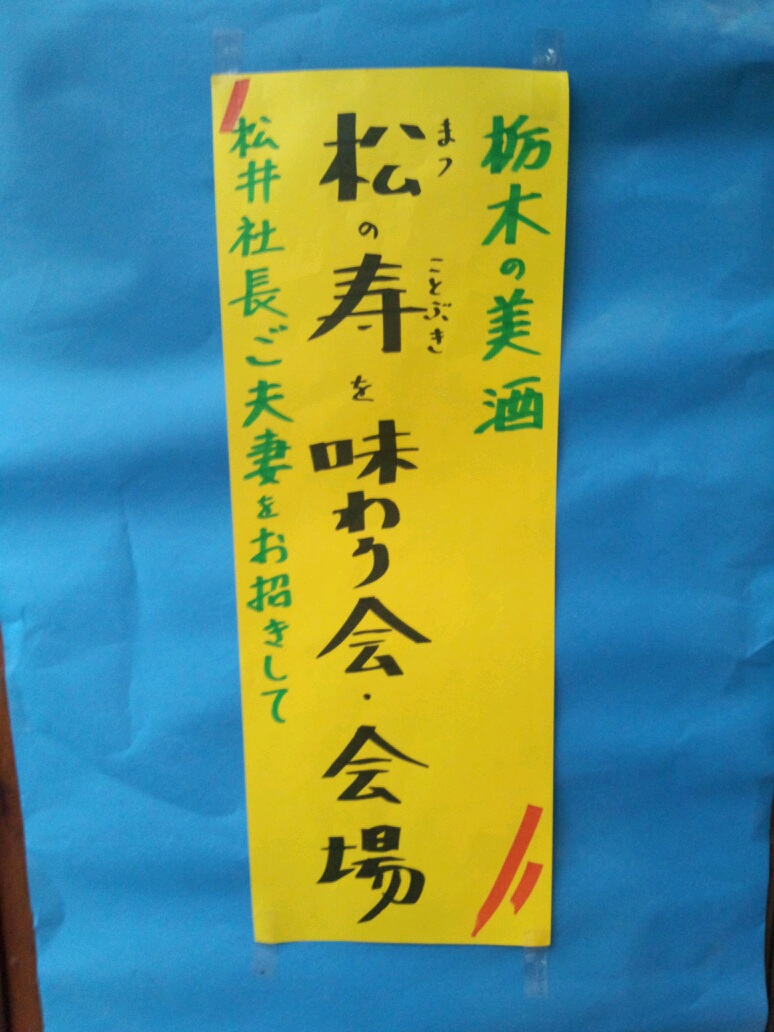 栃木の美酒
まつ ことぶき
松の寿を味わう会・会場
松井社長ご夫妻をお招きして